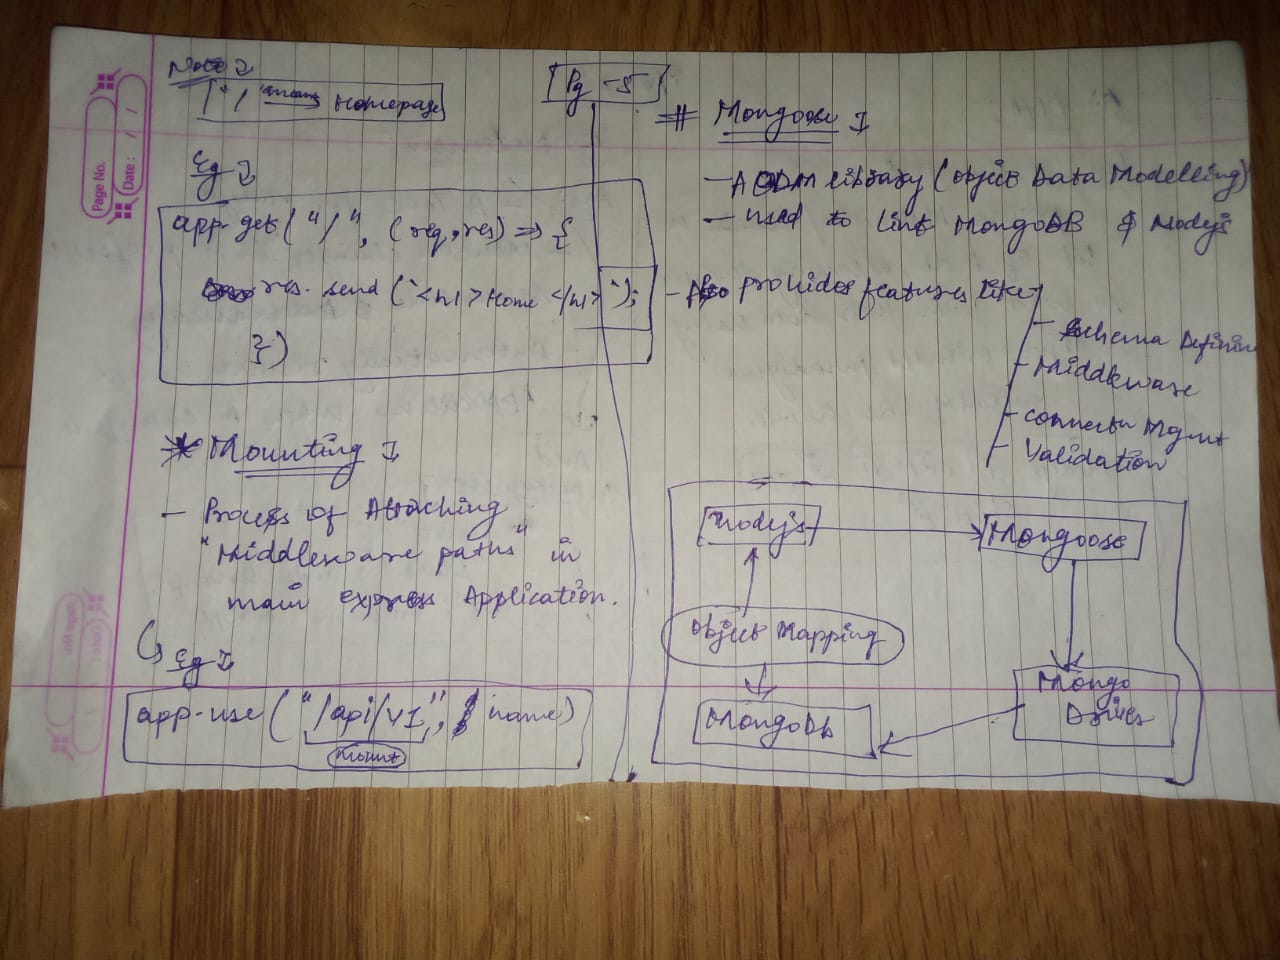 Note :
"/" means Homepage
Pg - 5
Eg :
app.get("/", (req,res) => {
res.send(`<h1>Home</h1>`);
})
* Mounting :
- Process of Attaching
"Middleware paths" in
main express Application.
Eg :
app.use("/api/v1", name)
mount
# Mongoose :
- A ODM library (Object Data Modelling)
- used to link MongoDB & Nodejs
- Also provides features like
- Schema Defining
- Middleware
- Mgmt
- Validation
Nodejs
Mongoose
Object Mapping
Mongo
Driver
MongoDb
Page No.
Date : / /
Page No.
Date :